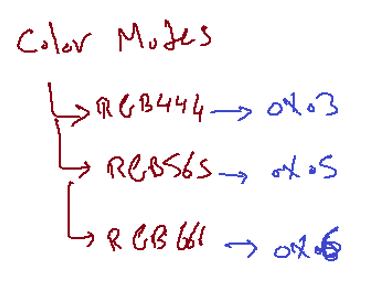 Color Modes
RGB444 → 0x03
RGB565 → 0x05
RGB666 → 0x06